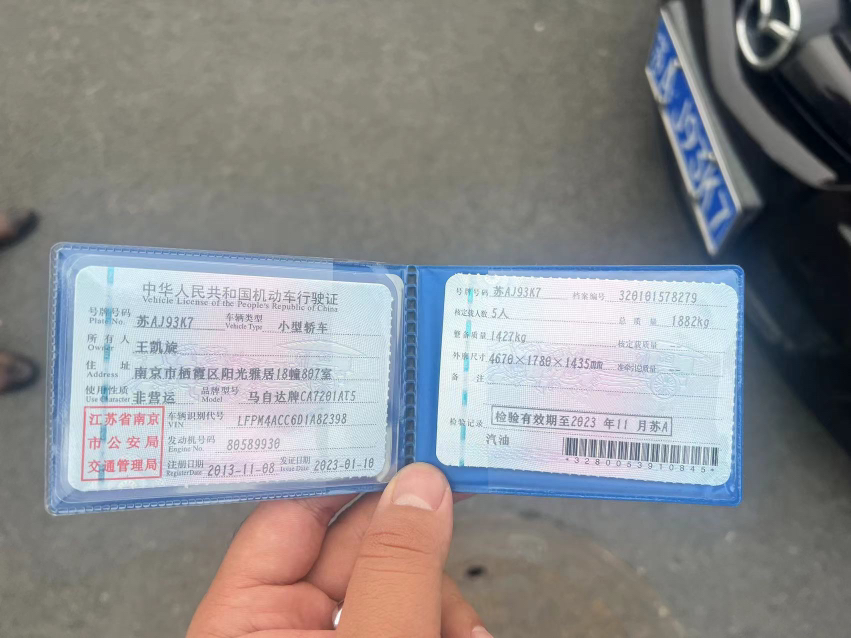 中华人民共和国机动车行驶证
Vehicle License of the People's Republic of China
号牌号码 苏AJ93K7 车辆类型 小型轿车
Plate No. Vehicle Type
所有人 王凯旋
Owner
住址 南京市栖霞区阳光雅居18幢807室
Address
使用性质 非营运 品牌型号 马自达牌CA7201AT5
Use Character Model
江苏省南京
市公安局
交通管理局
车辆识别代号 LFPM4ACC6D1A82398
VIN
发动机号码 80589930
Engine No.
注册日期 2013-11-08 发证日期 2023-01-10
Register Date Issue Date
号牌号码 苏AJ93K7 档案编号 320101578279
核定载人数 5人 总质量 1882kg
整备质量 1427kg 核定载质量 --
外廓尺寸 4670×1780×1435mm 准牵引总质量 --
备注
检验记录 检验有效期至2023年11月苏A
汽油
*3280053910845*
苏A J93K7